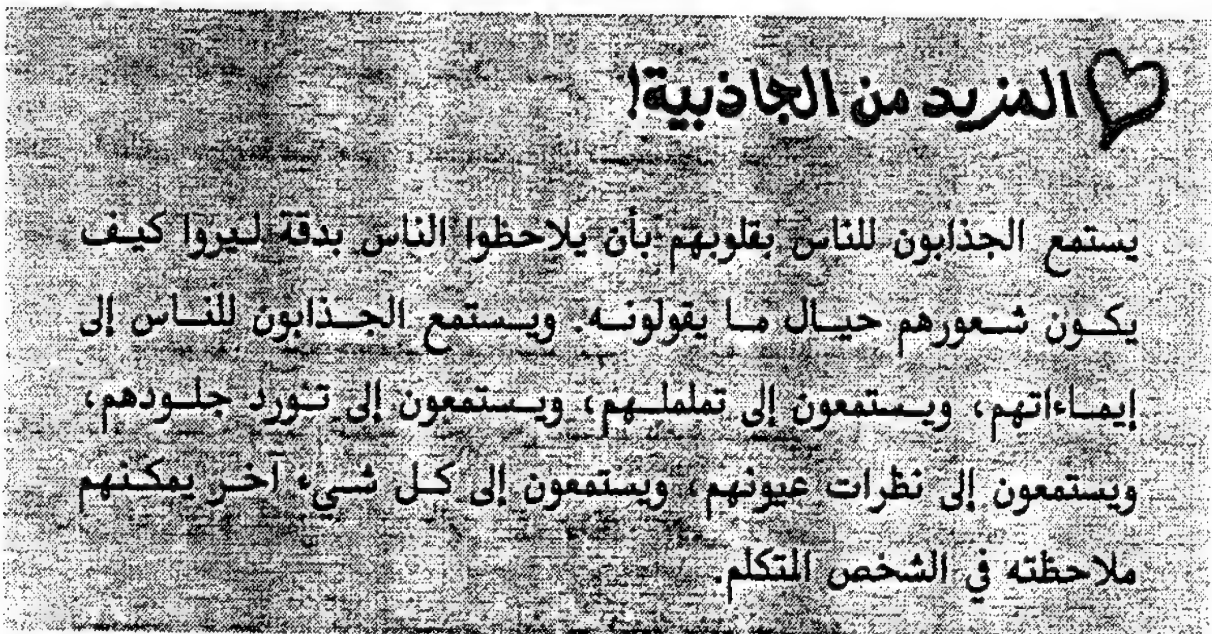 المزيد من الجاذبية!
يستمع الجذابون للناس بقلوبهم بأن يلاحظوا الناس بدقة ليروا كيف
يكون شعورهم حيال ما يقولونه. ويستمع الجذابون للناس إلى
إيماءاتهم، ويستمعون إلى تململهم، ويستمعون إلى تورد جلودهم،
ويستمعون إلى نظرات عيونهم، ويستمعون إلى كل شيء آخر يمكنهم
ملاحظته في الشخص المتكلم.